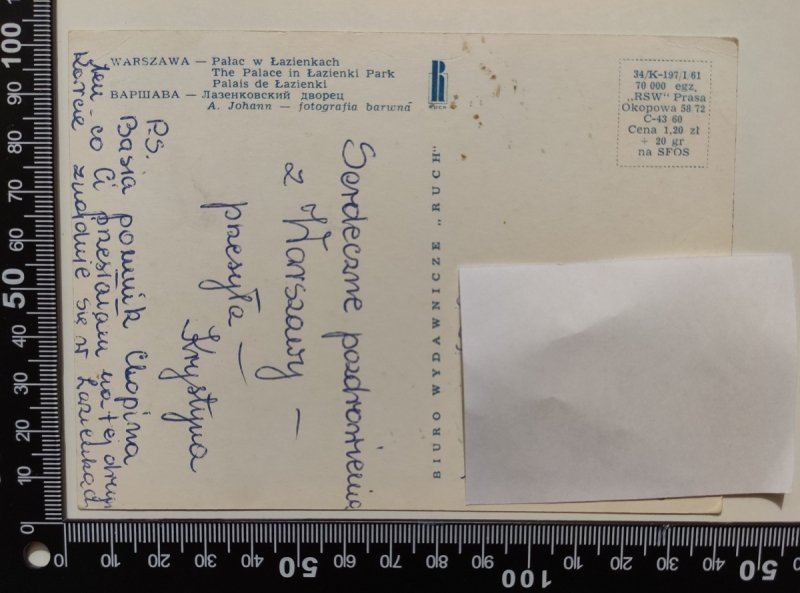 WARSZAWA — Pałac w Łazienkach
The Palace in Łazienki Park
Palais de Łazienki
ВАРШАВА — Лазенковский дворец
A. Johann — fotografia barwna
RUCH
34/K-197/I 61
70 000 egz.
„RSW" Prasa
Okopowa 58 72
C-43 60
Cena 1,20 zł
+ 20 gr
na SFOS
BIURO WYDAWNICZE „RUCH"
Serdeczne pozdrowienia
z Warszawy —
przesyła —
Krystyna
P.S.
Basia pomnik Chopina
ten - co Ci przesłałam na tej
karcie znajduje się w Łazienkach
0 10 20 30 40 50 60 70 80 90 100
0 10 20 30 40 50 60 70 80 90 100 10 20 30 40 50